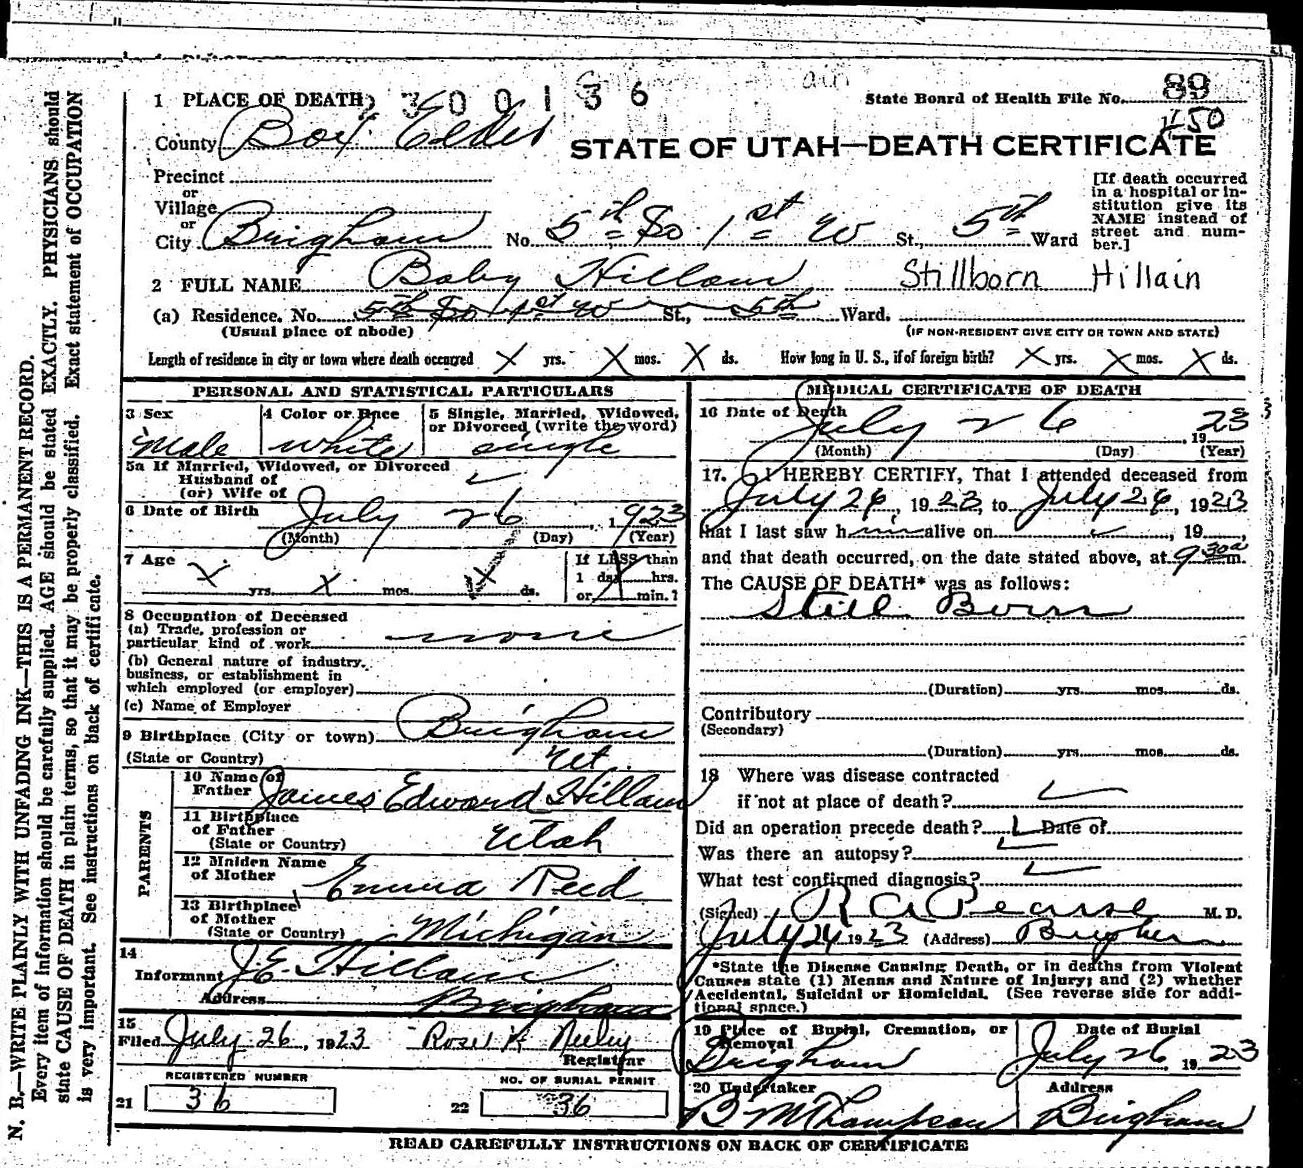 300136
89
State Board of Health File No.
150
1 PLACE OF DEATH
County Box Elder
STATE OF UTAH—DEATH CERTIFICATE
Precinct
or
Village
or
City Brigham No. 5th So. 1st W St., 5th Ward
[If death occurred in a hospital or in-
stitution give its
NAME instead of
street and num-
ber.]
2 FULL NAME Baby Hillam Stillborn Hillain
(a) Residence. No. 5th So 1st W St., 5th Ward.
(Usual place of abode) (IF NON-RESIDENT GIVE CITY OR TOWN AND STATE)
Length of residence in city or town where death occurred X yrs. X mos. X ds. How long in U. S., if of foreign birth? X yrs. X mos. X ds.
PERSONAL AND STATISTICAL PARTICULARS
3 Sex 4 Color or Race 5 Single, Married, Widowed,
or Divorced (write the word)
Male white single
5a If Married, Widowed, or Divorced
Husband of
(or) Wife of
6 Date of Birth July 26, 1923
(Month) (Day) (Year)
7 Age X yrs. X mos. X ds.
If LESS than
1 day hrs.
or min.?
8 Occupation of Deceased
(a) Trade, profession or
particular kind of work none
(b) General nature of industry,
business, or establishment in
which employed (or employer)
(c) Name of Employer
9 Birthplace (City or town) Brigham
(State or Country) Ut.
PARENTS
10 Name of
Father James Edward Hillam
11 Birthplace
of Father
(State or Country) Utah
12 Maiden Name
of Mother Emma Reed
13 Birthplace
of Mother
(State or Country) Michigan
14
Informant J.E. Hillam
Address Brigham
15
Filed July 26, 1923 Rose K Neeley
Registrar
REGISTERED NUMBER NO. OF BURIAL PERMIT
21 36 22 36
MEDICAL CERTIFICATE OF DEATH
16 Date of Death
July 26, 1923
(Month) (Day) (Year)
17. I HEREBY CERTIFY, That I attended deceased from
July 26, 1923 to July 26, 1923
that I last saw him alive on , 19 ,
and that death occurred, on the date stated above, at 9 30 a m.
The CAUSE OF DEATH* was as follows:
Still Born
(Duration) yrs. mos. ds.
Contributory
(Secondary)
(Duration) yrs. mos. ds.
18 Where was disease contracted
if not at place of death?
Did an operation precede death? Date of
Was there an autopsy?
What test confirmed diagnosis?
(Signed) R A Pearse M. D.
July 24 1923 (Address) Brigham
*State the Disease Causing Death, or in deaths from Violent
Causes state (1) Means and Nature of Injury; and (2) whether
Accidental, Suicidal or Homicidal. (See reverse side for addi-
tional space.)
19 Place of Burial, Cremation, or
Removal
Brigham
Date of Burial
July 26 1923
20 Undertaker Address
B M Thompson Brigham
READ CAREFULLY INSTRUCTIONS ON BACK OF CERTIFICATE
N. B.—WRITE PLAINLY WITH UNFADING INK—THIS IS A PERMANENT RECORD.
Every item of information should be carefully supplied. AGE should be stated EXACTLY. PHYSICIANS should
state CAUSE OF DEATH in plain terms, so that it may be properly classified. Exact statement of OCCUPATION
is very important. See instructions on back of certificate.